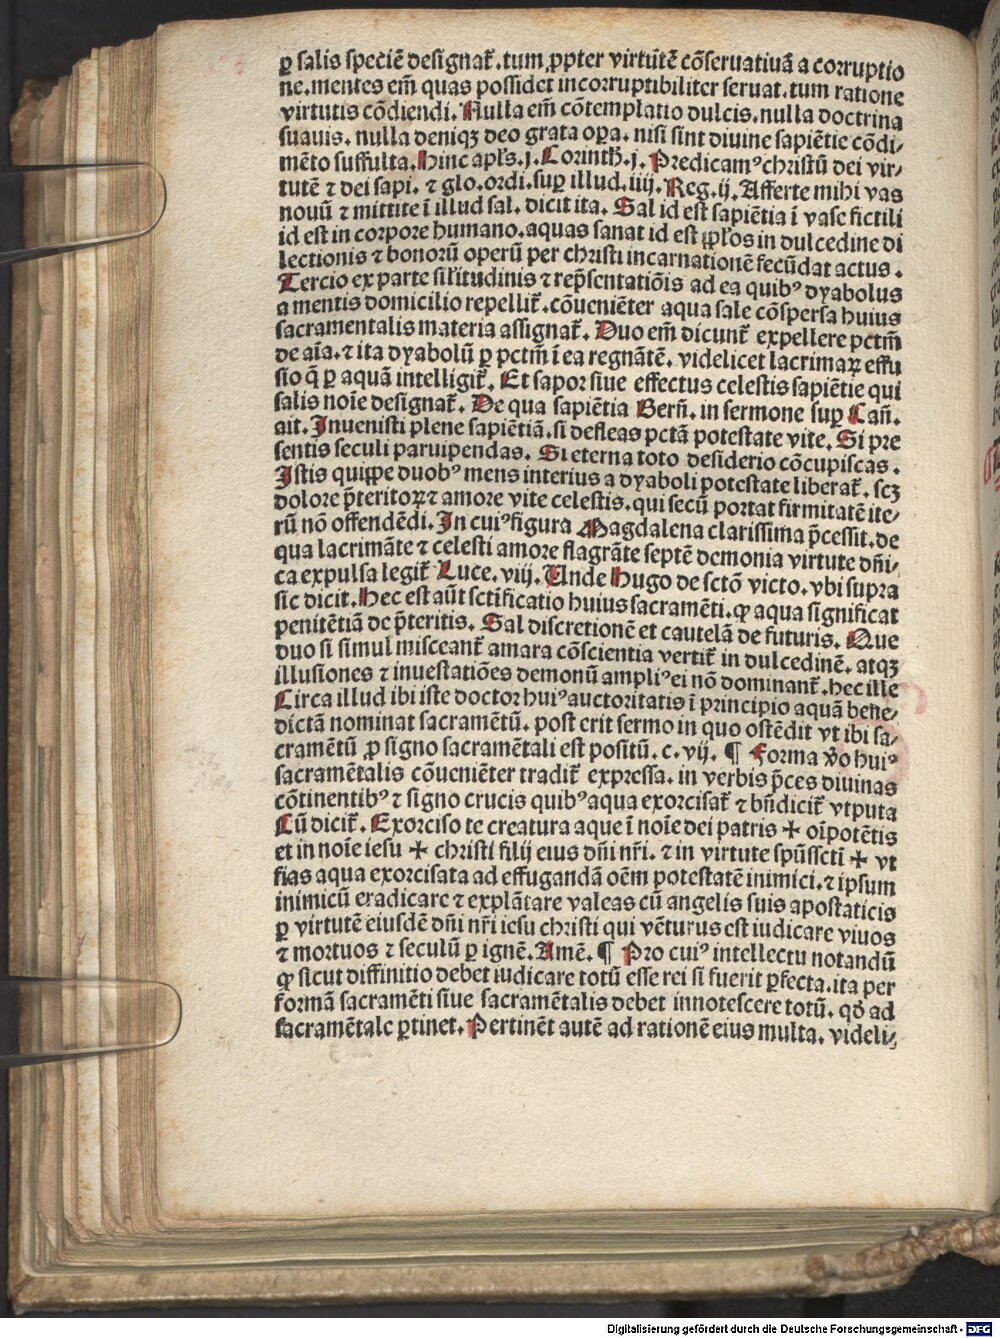 ꝑ salis speciē designat᷑. tum ꝓpter virtutē cōseruatiuā a corruptio
ne. mentes em̄ quas possidet incorruptibiliter seruat. tum ratione
virtutis cōdiendi. Nulla em̄ cōtemplatio dulcis. nulla doctrina
suauis. nulla deniqꝫ deo grata oꝑa. nisi sint diuine sapiētie cōdi⸗
mēto suffulta. Hinc apl̄s. j. Corinth̄. j. Predicamꝰ christū dei vir⸗
tutē ⁊ dei sapi. ⁊ glo. ordi. suꝑ illud. iiij. Reg. ij. Afferte mihi vas
nouū ⁊ mittite ī illud sal. dicit ita. Sal id est sapiētia ī vase fictili
id est in corpore humano. aquas sanat id est pl̄os in dulcedine di
lectionis ⁊ bonorū operū per christi incarnationē fecūdat actus.
Tercio ex parte sil̄itudinis ⁊ rep̄sentatiōis ad ea quibꝰ dyabolus
a mentis domicilio repellit᷑. cōueniēter aqua sale cōspersa huius
sacramentalis materia assignat᷑. Duo em̄ dicunt᷑ expellere pctm̄
de aīa. ⁊ ita dyabolū ꝑ pctm̄ ī ea regnātē. videlicet lacrimaꝝ effu
sio q̄ ꝑ aquā intelligit᷑. Et sapor siue effectus celestis sapiētie qui
salis noīe designat᷑. De qua sapiētia Bern̄. in sermone suꝑ Can̄.
ait. Inuenisti plene sapiētiā. si defleas pctā potestate vite. Si pre
sentis seculi paruipendas. Si eterna toto desiderio cōcupiscas.
Istis quiꝑpe duobꝰ mens interius a dyaboli potestate liberat᷑. scꝫ
dolore p̄teritoꝝ ⁊ amore vite celestis. qui secū portat firmitatē ite⸗
rū nō offendēdi. In cuiꝰ figura Magdalena clarissima p̄cessit. de
qua lacrimāte ⁊ celesti amore flagrāte septē demonia virtute dn̄i⸗
ca expulsa legit᷑ Luce. viij. Unde Hugo de sctō victo. vbi supra
sic dicit. Hec est aūt sctīficatio huius sacramēti. ꝙ aqua significat
penitētiā de p̄teritis. Sal discretionē et cautelā de futuris. Que
duo si simul misceant᷑ amara cōscientia vertit᷑ in dulcedinē. atqꝫ
illusiones ⁊ inuestatiōes demonū ampliꝰ ei nō dominant᷑. hec ille
Circa illud ibi iste doctor huiꝰ auctoritatis ī principio aquā bene⸗
dictā nominat sacramētū. post erit sermo in quo ostēdit vt ibi sa⸗
cramētū ꝓ signo sacramētali est positū. c. vij. ¶ Forma v̄o huiꝰ
sacramētalis cōueniēter tradit᷑ expressa. in verbis p̄ces diuinas
cōtinentibꝰ ⁊ signo crucis quibꝰ aqua exorcisat᷑ ⁊ bn̄dicit᷑ vtputa
Cū dicit᷑. Exorciso te creatura aque ī noīe dei patris ✠ oīpotētis
et in noīe iesu ✠ christi filij eius dn̄i nr̄i. ⁊ in virtute spūssctī ✠ vt
fias aqua exorcisata ad effugandā oēm potestatē inimici. ⁊ ipsum
inimicū eradicare ⁊ explātare valeas cū angelis suis apostaticis
ꝑ virtutē eiusdē dn̄i nr̄i iesu christi qui vēturus est iudicare viuos
⁊ mortuos ⁊ seculū ꝑ ignē. Amē. ¶ Pro cuiꝰ intellectu notandū
ꝙ sicut diffinitio debet iudicare totū esse rei si fuerit ꝑfecta. ita per
formā sacramēti siue sacramētalis debet innotescere totū. qd̄ ad
sacramētale ꝑtinet. Pertinēt autē ad rationē eius multa. videli⸗
Digitalisierung gefördert durch die Deutsche Forschungsgemeinschaft - DFG